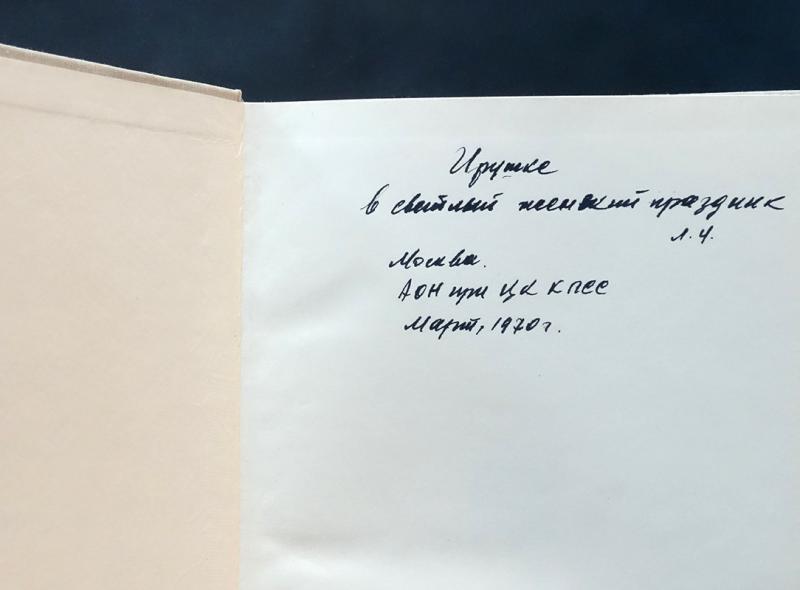 Ирушке
в светлый женский праздник
Л.Ч.
Москва.
АОН при ЦК КПСС
Март, 1970г.